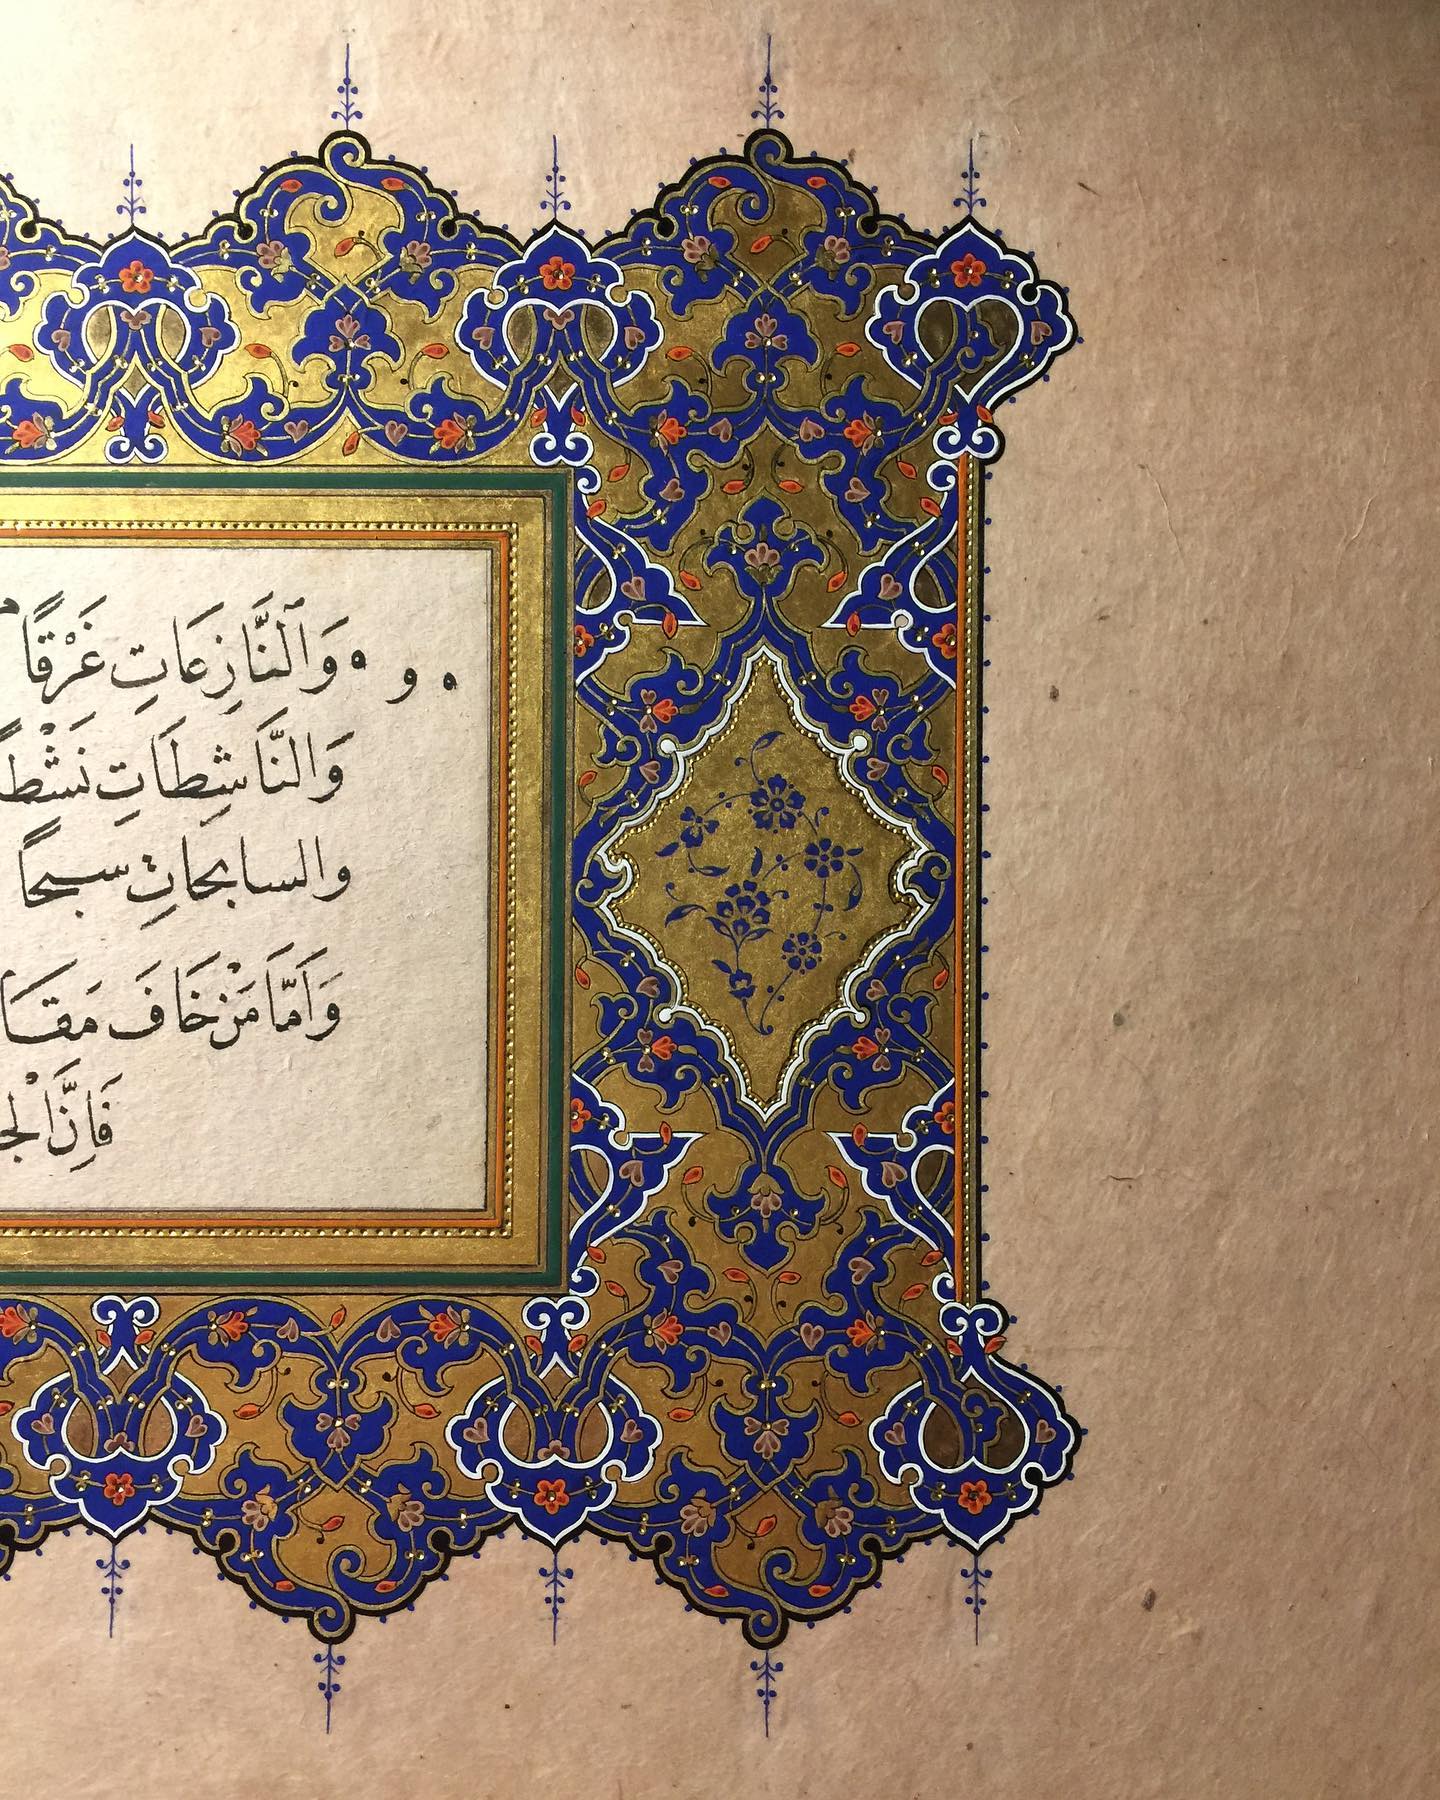 وَٱلنَّازِعَاتِ غَرْقًا
وَالنَّاشِطَاتِ نَشْطًا
والسابحاتِ سبحًا
وَاَمَّا مَنْ خَافَ مَقَا
فَاِنَّ الْجَ